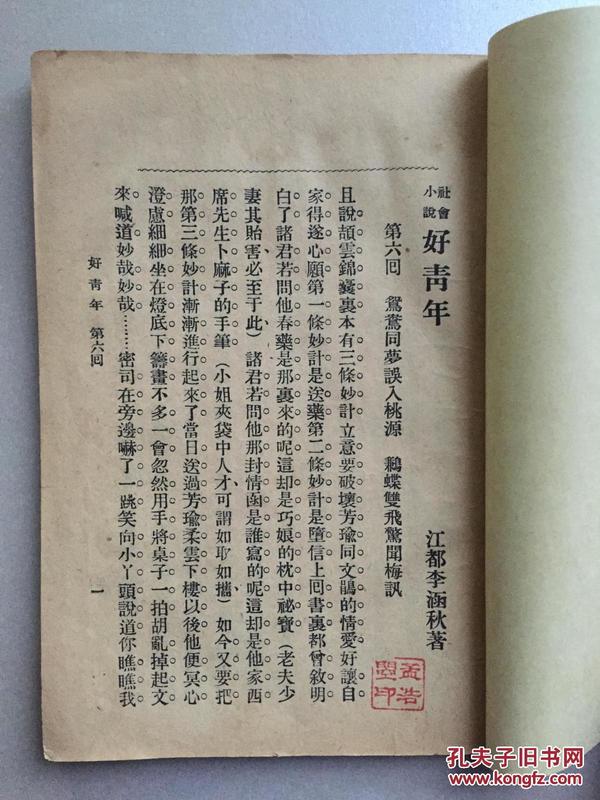 社會小說 好青年 江都李涵秋著
第六囘 鴛鴦同夢誤入桃源 鶼蝶雙飛驚聞梅訊
且說頡雲錦囊裏本有三條妙計立意要破壞芳瑜同文鵑的情愛好讓自
家得遂心願第一條妙計是送藥第二條妙計是墮信上囘書裏都曾敘明
白了諸君若問他春藥是那裏來的呢這却是巧娘的枕中祕寶(老夫少
妻其貽害必至于此)諸君若問他那封情函是誰寫的呢這却是他家西
席先生卜麻子的手筆(小姐夾袋中人才可謂如取如攜)如今又要把
那第三條妙計漸漸進行起來了當日送過芳瑜柔雲下樓以後他便冥心
澄慮細細坐在燈底下籌畫不多一會忽然用手將桌子一拍胡亂掉起文
來喊道妙哉妙哉………密司在旁邊嚇了一跳笑向小丫頭說道你瞧瞧我
好青年 第六囘 一
孟浩
墨印
孔夫子旧书网
www.kongfz.com